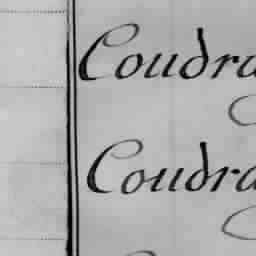 Coudra
Coudra